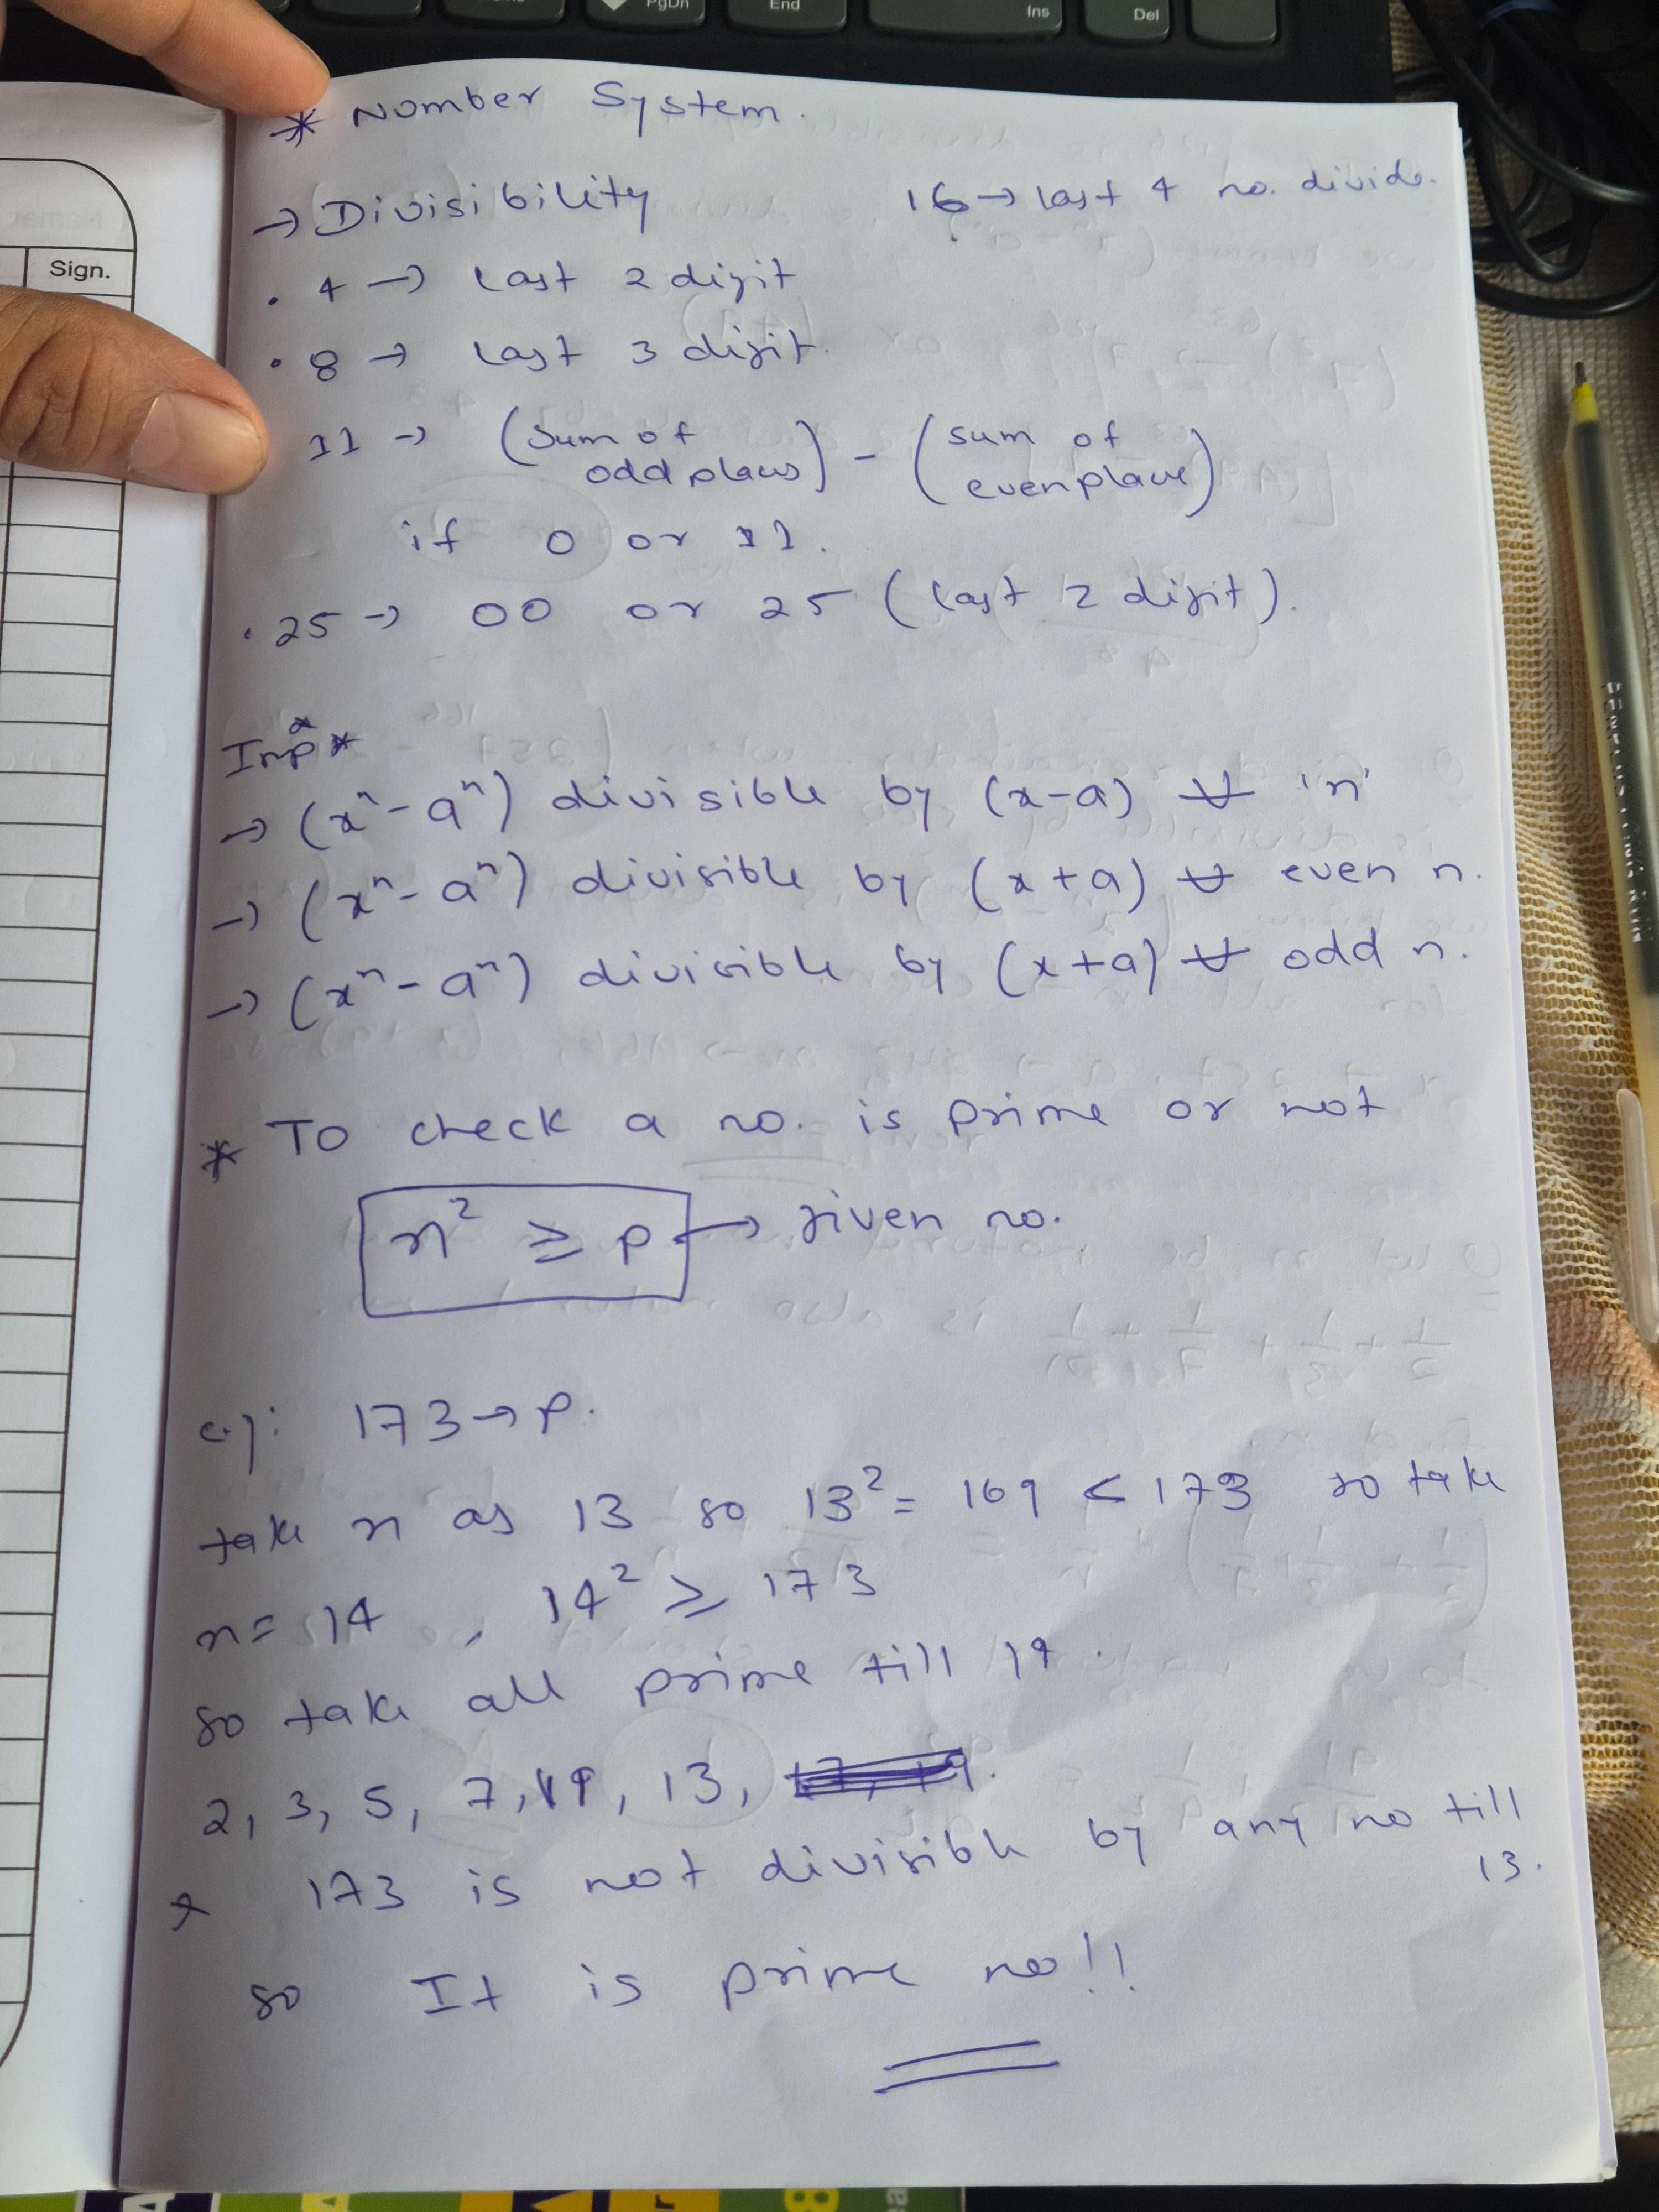 PgDn
End
Ins
Del
Sign.
* Number System.
→ Divisibility
16 → last 4 no. divide.
. 4 → Last 2 digit
. 8 → Last 3 digit.
11 → (Sum of odd places) - (sum of even place)
if 0 or 11.
. 25 → 00 or 25 (last 2 digit).
Imp **
→ (xⁿ - aⁿ) divisible by (x-a) ∀ 'n'
→ (xⁿ - aⁿ) divisible by (x+a) ∀ even n.
→ (xⁿ - aⁿ) divisible by (x+a) ∀ odd n.
* To check a no. is prime or not
n² ≥ p → given no.
eg: 173 → p.
take n as 13 so 13² = 169 < 173 so take
n = 14 , 14² ≥ 173
so take all prime till 14.
2, 3, 5, 7, 11, 13,
* 173 is not divisible by any no till
13.
so It is prime no!!